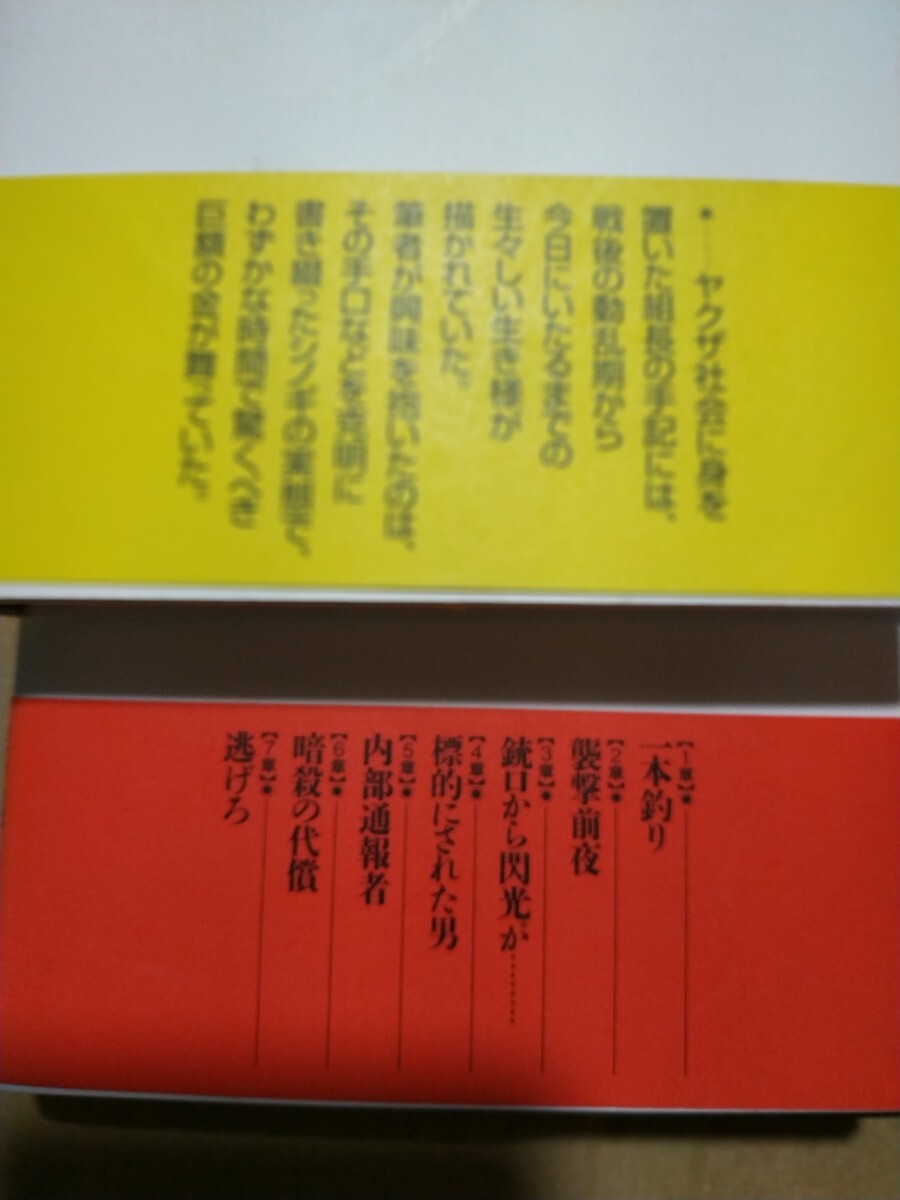 ●――ヤクザ社会に身を
置いた組長の手記には、
戦後の動乱期から
今日にいたるまでの
生々しい生き様が
描かれていた。
筆者が興味を抱いたのは、
その手口などを克明に
書き綴ったシノギの実態で、
わずかな時間で驚くべき
巨額の金が舞っていた。
【1章】●
一本釣り
【2章】●
襲撃前夜
【3章】●
銃口から閃光が………
【4章】●
標的にされた男
【5章】●
内部通報者
【6章】●
暗殺の代償
【7章】●
逃げろ